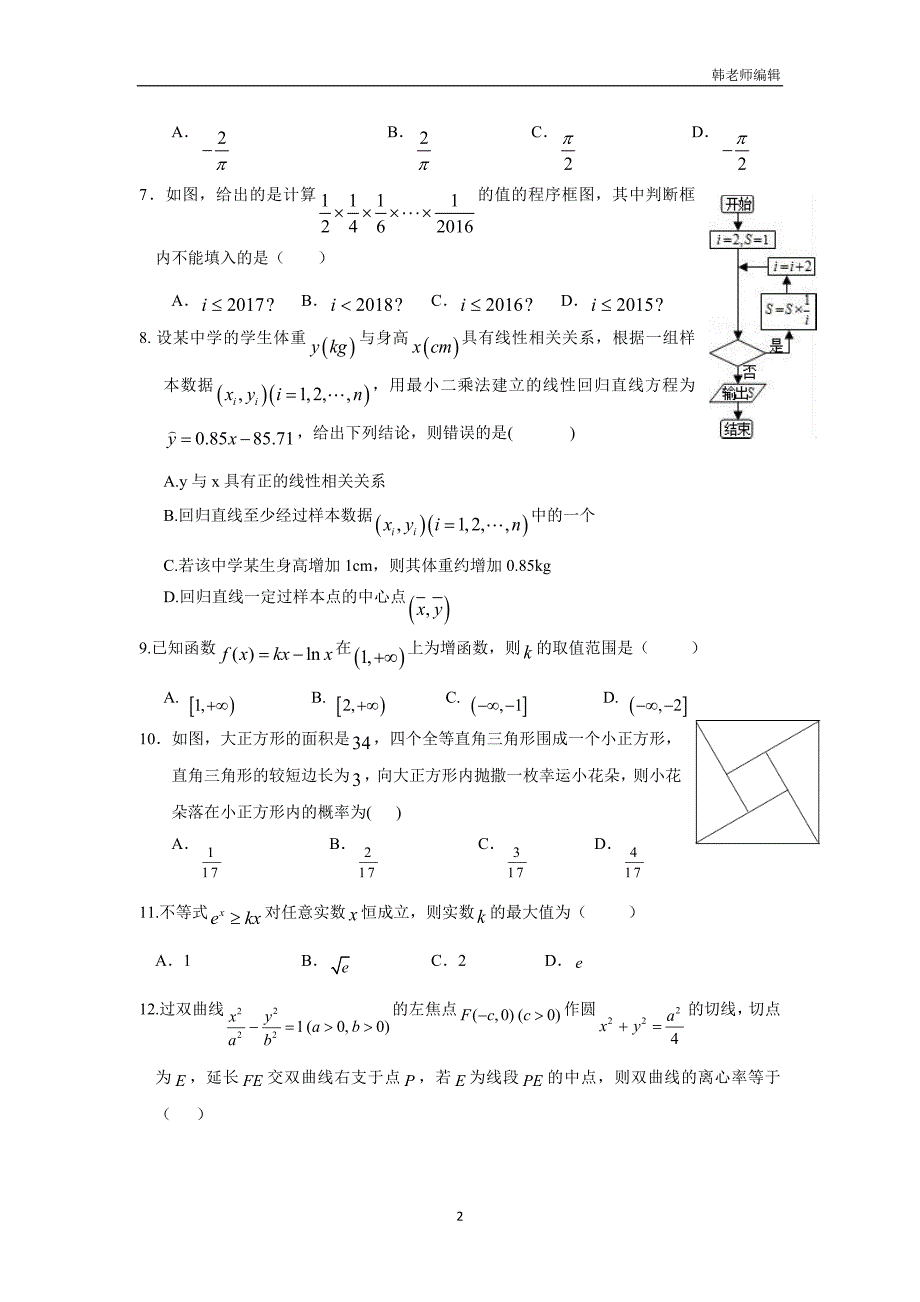 韩老师编辑
A． -2/π B． 2/π C． π/2 D． -π/2
7．如图，给出的是计算 1/2×1/4×1/6×⋯×1/2016 的值的程序框图，其中判断框
内不能填入的是（ ）
A． i≤2017? B． i<2018? C． i≤2016? D． i≤2015?
开始
i=2,S=1
i=i+2
S=S×1/i
是
否
输出S
结束
8. 设某中学的学生体重 y(kg) 与身高 x(cm) 具有线性相关关系，根据一组样
本数据 (xᵢ, yᵢ)(i=1,2,⋯,n)，用最小二乘法建立的线性回归直线方程为
ŷ=0.85x−85.71，给出下列结论，则错误的是( )
A.y 与 x 具有正的线性相关关系
B.回归直线至少经过样本数据 (xᵢ, yᵢ)(i=1,2,⋯,n) 中的一个
C.若该中学某生身高增加 1cm，则其体重约增加 0.85kg
D.回归直线一定过样本点的中心点 (x̄, ȳ)
9.已知函数 f(x)=kx−ln x 在 (1,+∞) 上为增函数，则 k 的取值范围是（ ）
A. [1,+∞) B. [2,+∞) C. (−∞,−1] D. (−∞,−2]
10．如图，大正方形的面积是 34，四个全等直角三角形围成一个小正方形，
直角三角形的较短边长为 3，向大正方形内抛撒一枚幸运小花朵，则小花
朵落在小正方形内的概率为( )
A． 1/17 B． 2/17 C． 3/17 D． 4/17
11.不等式 eˣ≥kx 对任意实数 x 恒成立，则实数 k 的最大值为（ ）
A．1 B．√e C．2 D．e
12.过双曲线 x²/a²−y²/b²=1(a>0,b>0) 的左焦点 F(−c,0)(c>0) 作圆 x²+y²=a²/4 的切线，切点
为 E，延长 FE 交双曲线右支于点 P，若 E 为线段 PE 的中点，则双曲线的离心率等于
（ ）
2